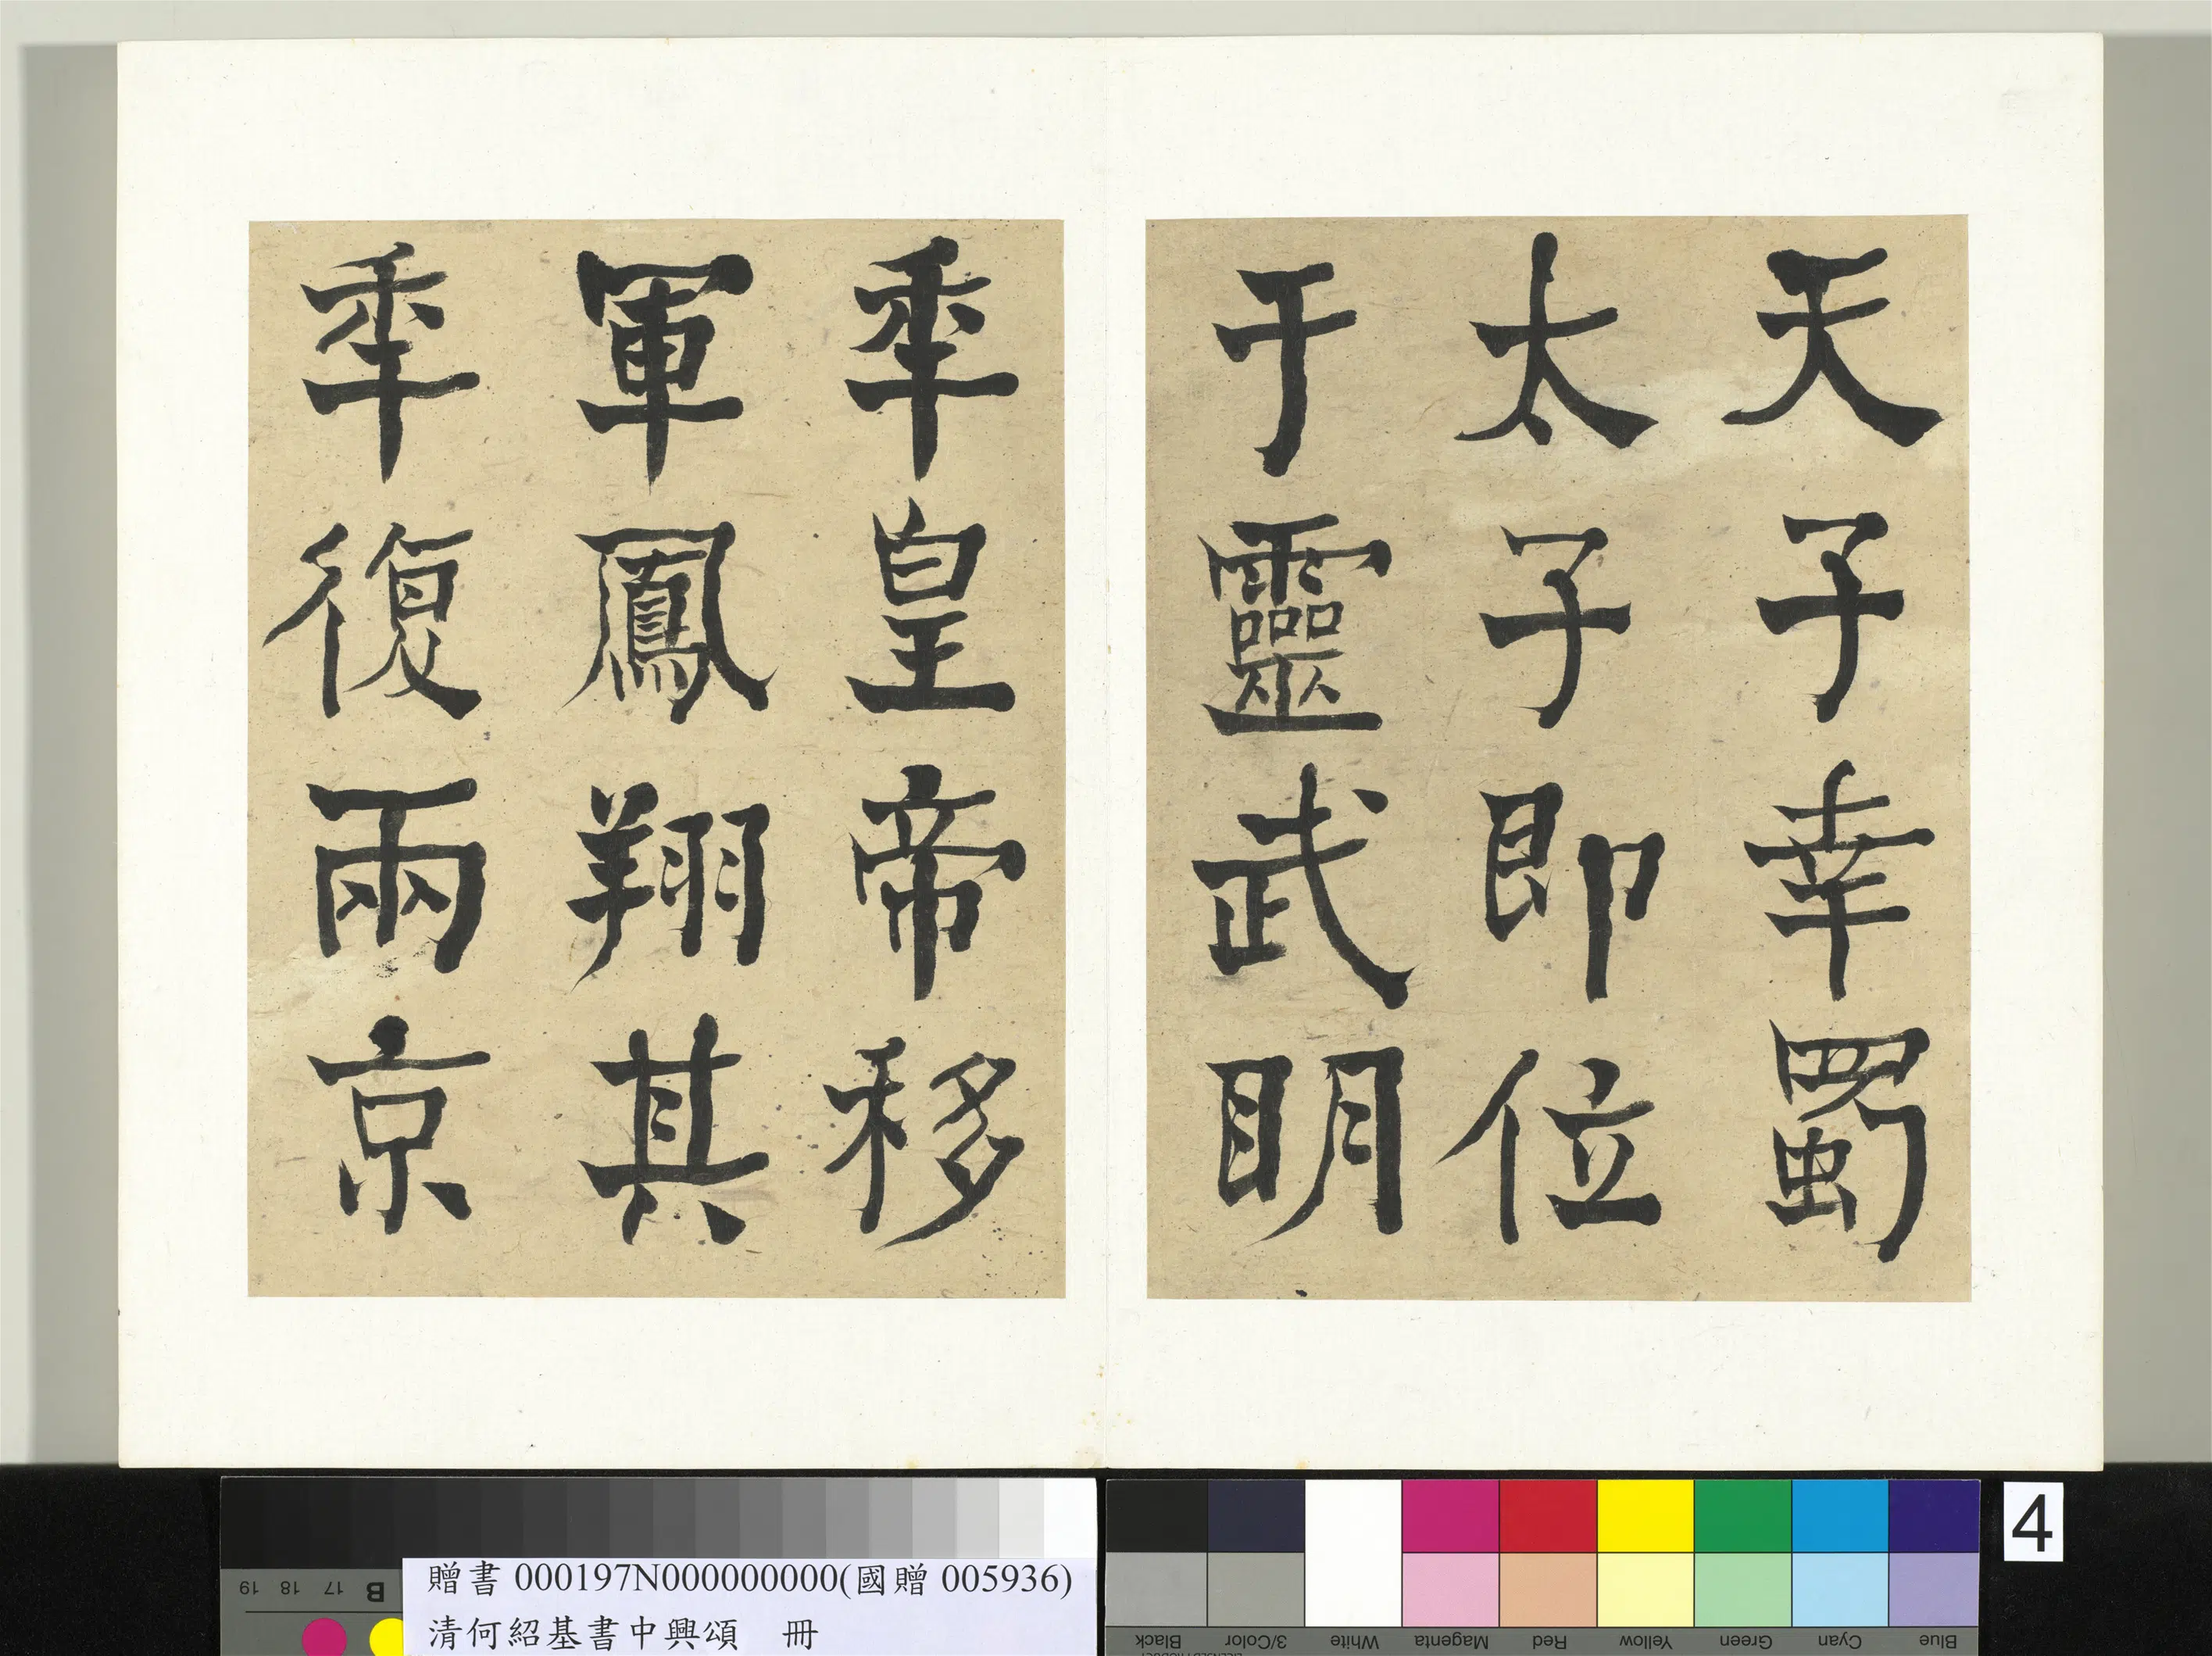 天子幸蜀
太子即位
于靈武明
秊皇帝移
軍鳳翔其
秊復兩京
4
贈書 000197N000000000(國贈 005936)
清何紹基書中興頌 冊
19 18 17 B
Black 3/Color White Magenta Red Yellow Green Cyan Blue